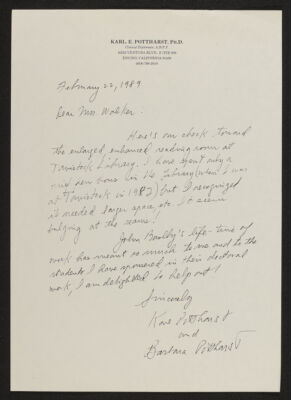 KARL E. POTTHARST, PH.D.
ENCINO, CALIFORNIA
February 22, 1989
Dear Mrs. Walker:
Here's our check toward
the enlarged, enhanced reading room at
Tavistock Library. I have spent only a
few hours in the Library (when I was
at Tavistock in 1982) but I recognized
it needed larger space, etc. It seems
bulging at the seams!
John Bowlby's life-time of
work has meant so much to me and to the
students I have sponsored in their doctoral
work, I am delighted to help out!
Sincerely
Karl Pottharst
and
Barbara Pottharst